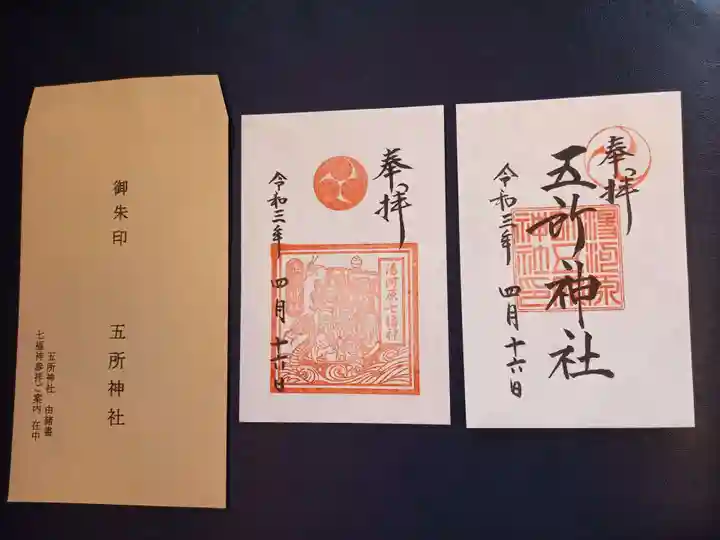 御朱印 五所神社
五所神社 由緒書
七福神参拝ご案内 在中
奉拝
令和三年 四月 十六日
湯河原七福神
奉拝
五所神社
令和三年 四月 十六日